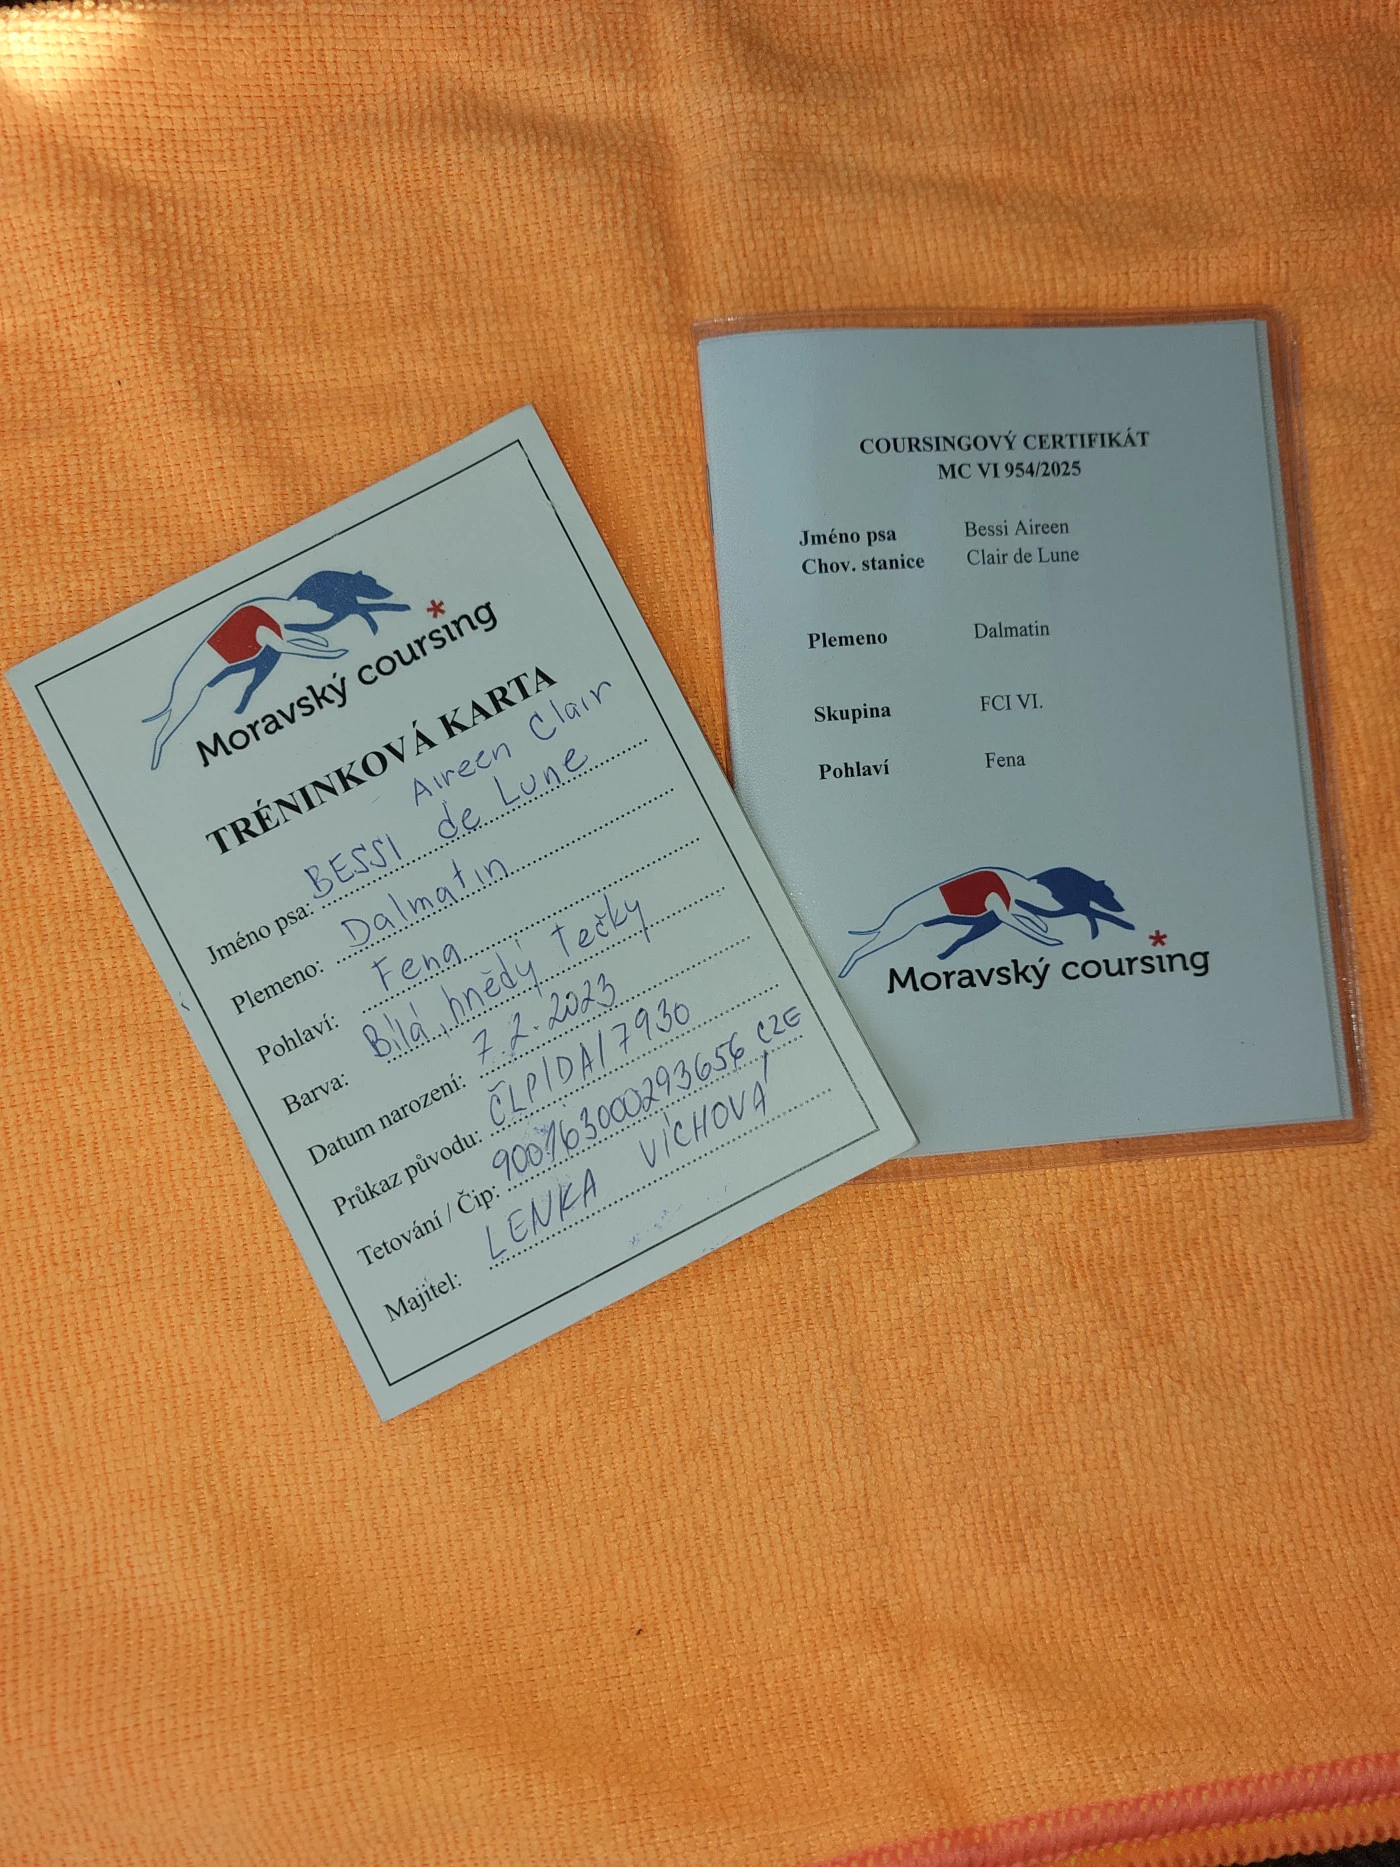 Moravský coursing
TRÉNINKOVÁ KARTA
Aireen Clair
Jméno psa: BESSI de Lune
Plemeno: Dalmatin
Pohlaví: Fena
Barva: Bílá, hnědý tečky
Datum narození: 7.2.2023
Průkaz původu: ČLP/DA/7930
Tetování / Čip: 900163000293656 CZE
Majitel: LENKA VÍCHOVÁ
COURSINGOVÝ CERTIFIKÁT
MC VI 954/2025
Jméno psa Bessi Aireen
Chov. stanice Clair de Lune
Plemeno Dalmatin
Skupina FCI VI.
Pohlaví Fena
Moravský coursing